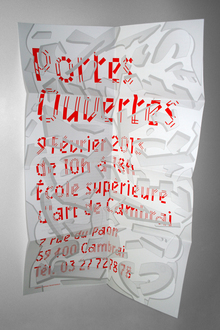 Portes
Ouvertes
9 février 2013
de 10h à 18h
École supérieure
d'art de Cambrai
7 rue du Paon
59 400 Cambrai
Tél. 03 27 727878